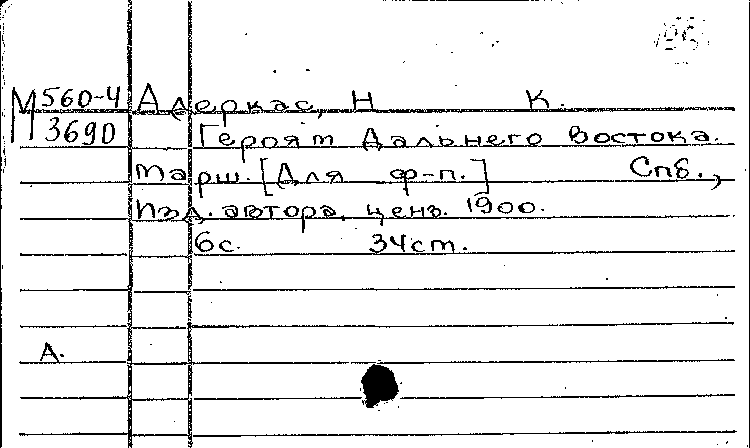 М 560-4 Адеркас, Н К.
3690 Героям Дальнего Востока.
Марш. [Для ф-п.] Спб.,
Изд. автора, ценз. 1900.
6с. 34см.
А.